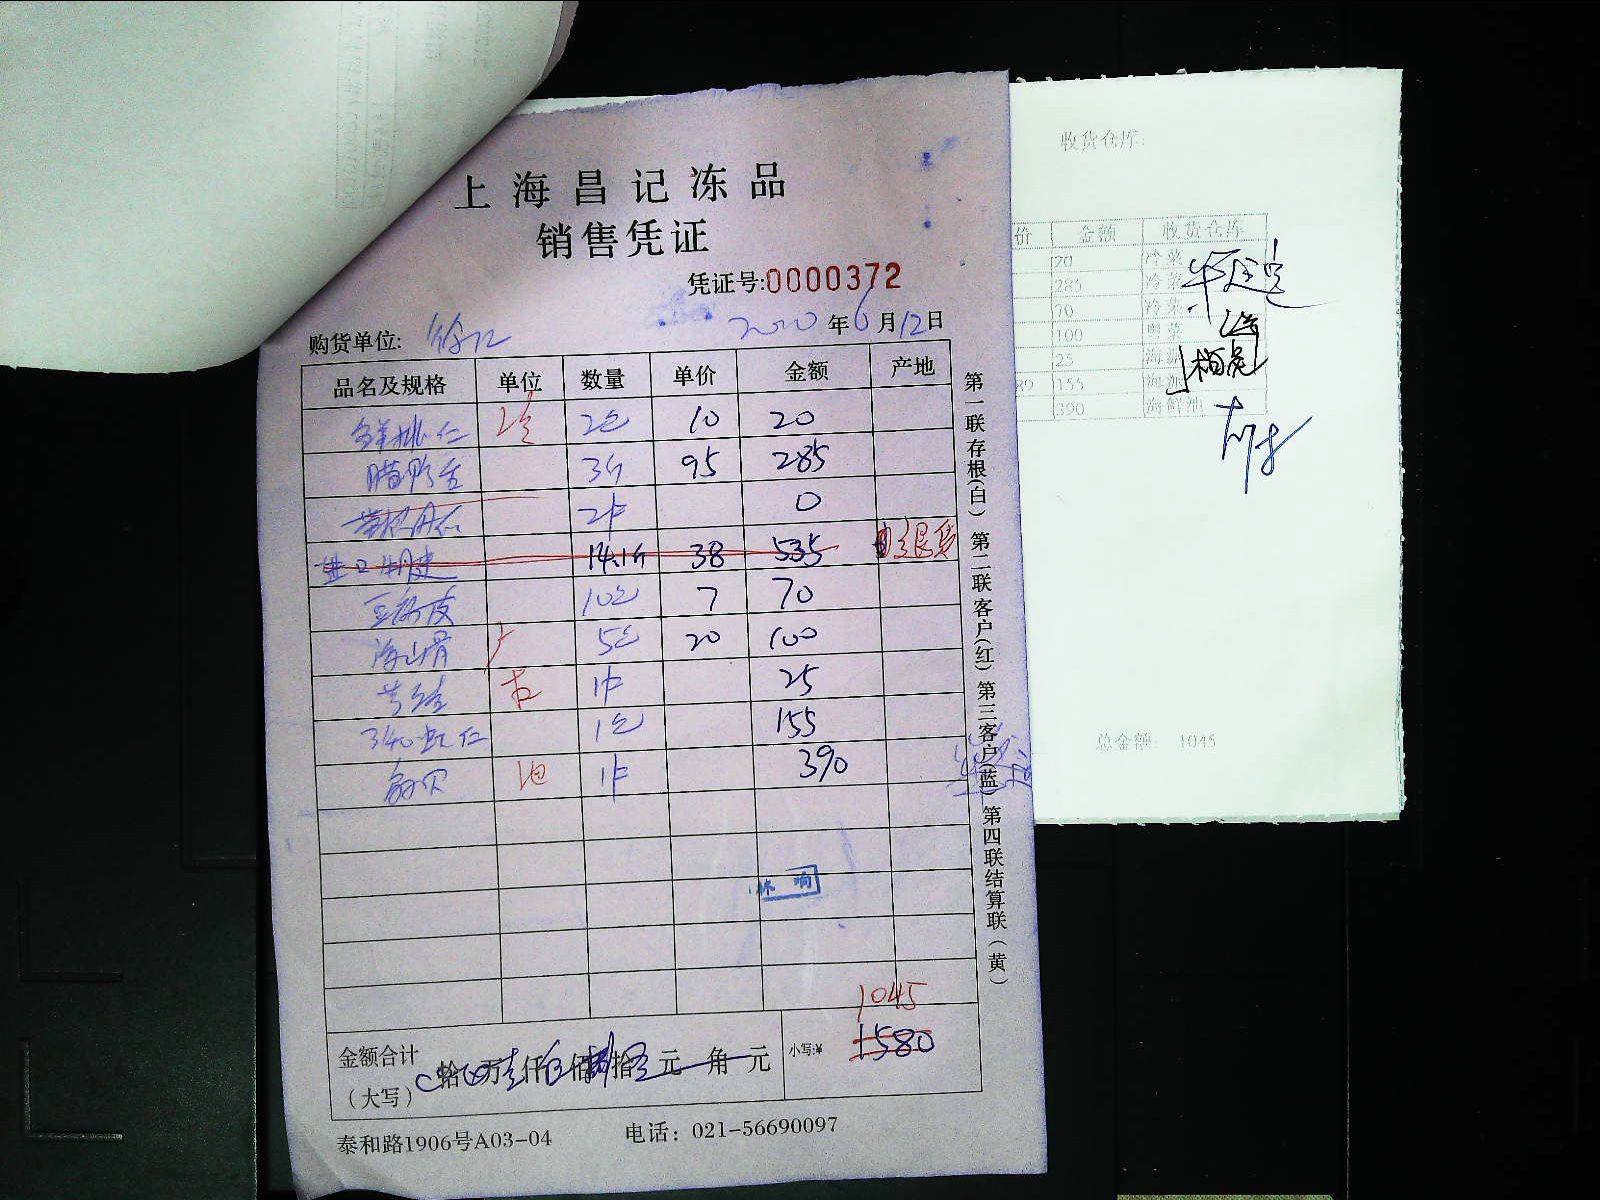 上海昌记冻品
销售凭证
凭证号:0000372
购货单位: 徐汇 2020年6月12日
品名及规格 单位 数量 单价 金额 产地
鲜桃仁 2包 10 20
腊鸭舌 3斤 95 285
2件 0
进口牛腱 14.1斤 38 535 退货
豆腐皮 10包 7 70
5包 20 100
1件 25
3140虾仁 1包 155
扇贝 池 1件 390
1045
金额合计
(大写)
拾 万 仟 佰 拾 元 角 元
小写:¥ 1580
泰和路1906号A03-04 电话: 021-56690097
第一联存根(白) 第二联客户(红) 第三客户(蓝) 第四联结算联(黄)
收货仓库:
价 金额 收货仓库
20 冷菜
285 冷菜
70 冷菜
100 粤菜
25 海派
89 155 海派
390 海鲜池
总金额: 1045